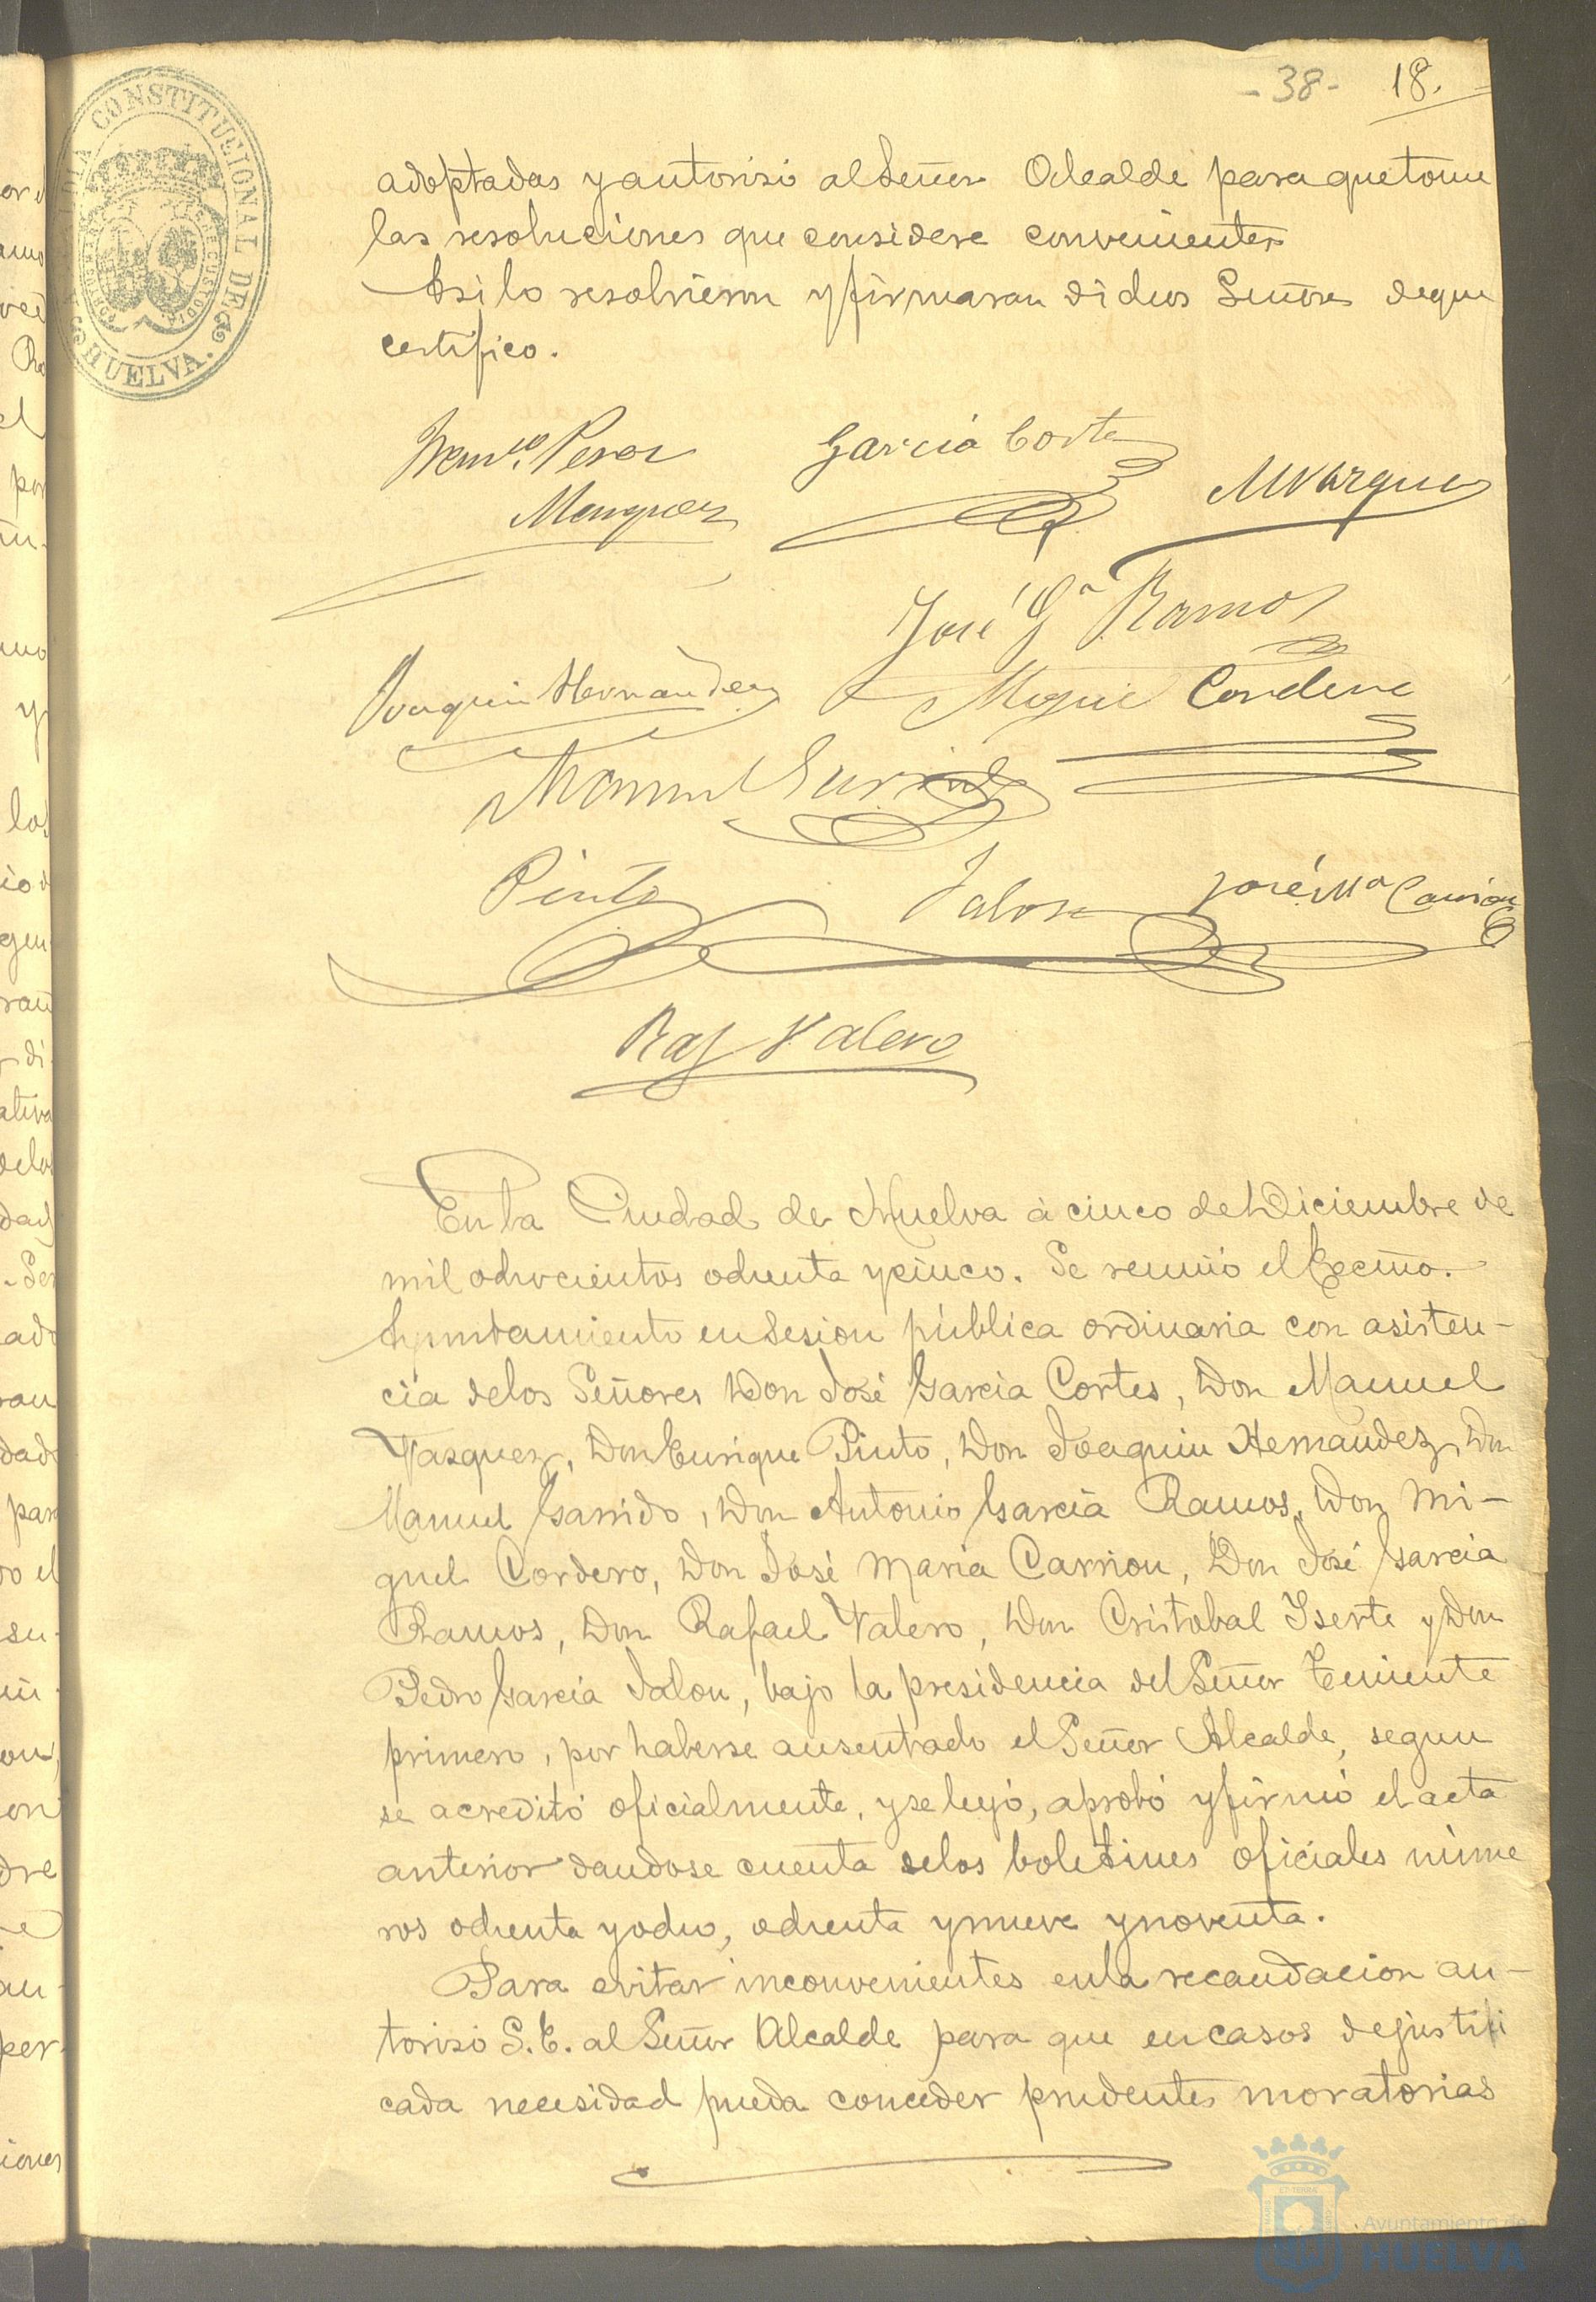 - 38 - 18.
ALCALDIA CONSTITUCIONAL DE HUELVA.
PORTUS MARIS ET TERRÆ CUSTODIA
adoptadas y autorisó al Señor Alcalde para que tome
las resoluciones que considere convenientes
Asi lo resolvieron y firmaran dichos Señores de que
certifico.
Garcia Cortes
MVazquez
José Ga Ramos
Joaquin Hernandez
Miguel Cordero
Manuel Garrido
Pinto
Jalon
José Ma Carrion
Raf Valero
En la Ciudad de Huelva á cinco de Diciembre de
mil ochocientos ochenta y cinco. Se reunió el Excmo.
Ayuntamiento en Sesion pública ordinaria con asisten-
cia de los Señores Don José Garcia Cortes, Don Manuel
Vazquez, Don Enrique Pinto, Don Joaquin Hernandez, Don
Manuel Garrido, Don Antonio Garcia Ramos, Don Mi-
guel Cordero, Don José Maria Carrion, Don José Garcia
Ramos, Don Rafael Valero, Don Cristobal Yserte y Don
Pedro Garcia Jalon, bajo la presidencia del Señor Teniente
primero, por haberse ausentado el Señor Alcalde, segun
se acreditó oficialmente, y se leyó, aprobó y firmó el acta
anterior dandose cuenta de los boletines oficiales núme
ros ochenta y ocho, ochenta y nueve y noventa.
Para evitar inconvenientes en la recaudacion au-
torisó S.E. al Señor Alcalde para que en casos de justifi
cada necesidad pueda conceder prudentes moratorias
Ayuntamiento de
HUELVA